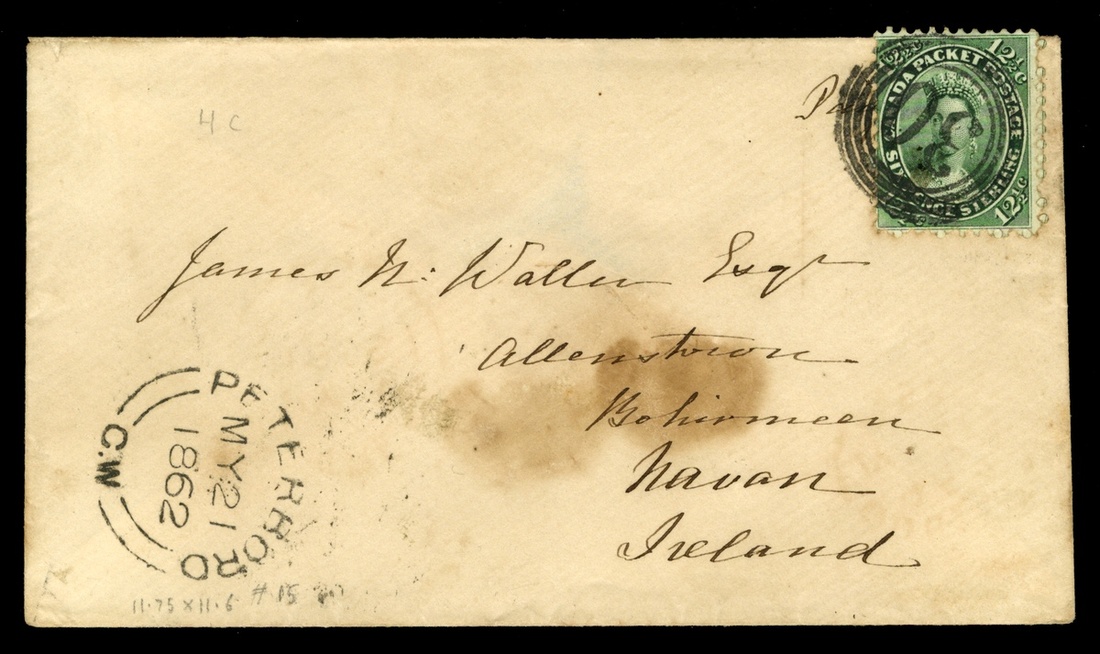 4 c
12½c
CANADA PACKET POSTAGE
SIX PENCE STERLING
12½c
James N: Waller Esqr
Allenstown
Bohirmeen
Navan
Ireland
PETERBORO
MY 21
1862
C.W
11.75 x 11.6 # 15